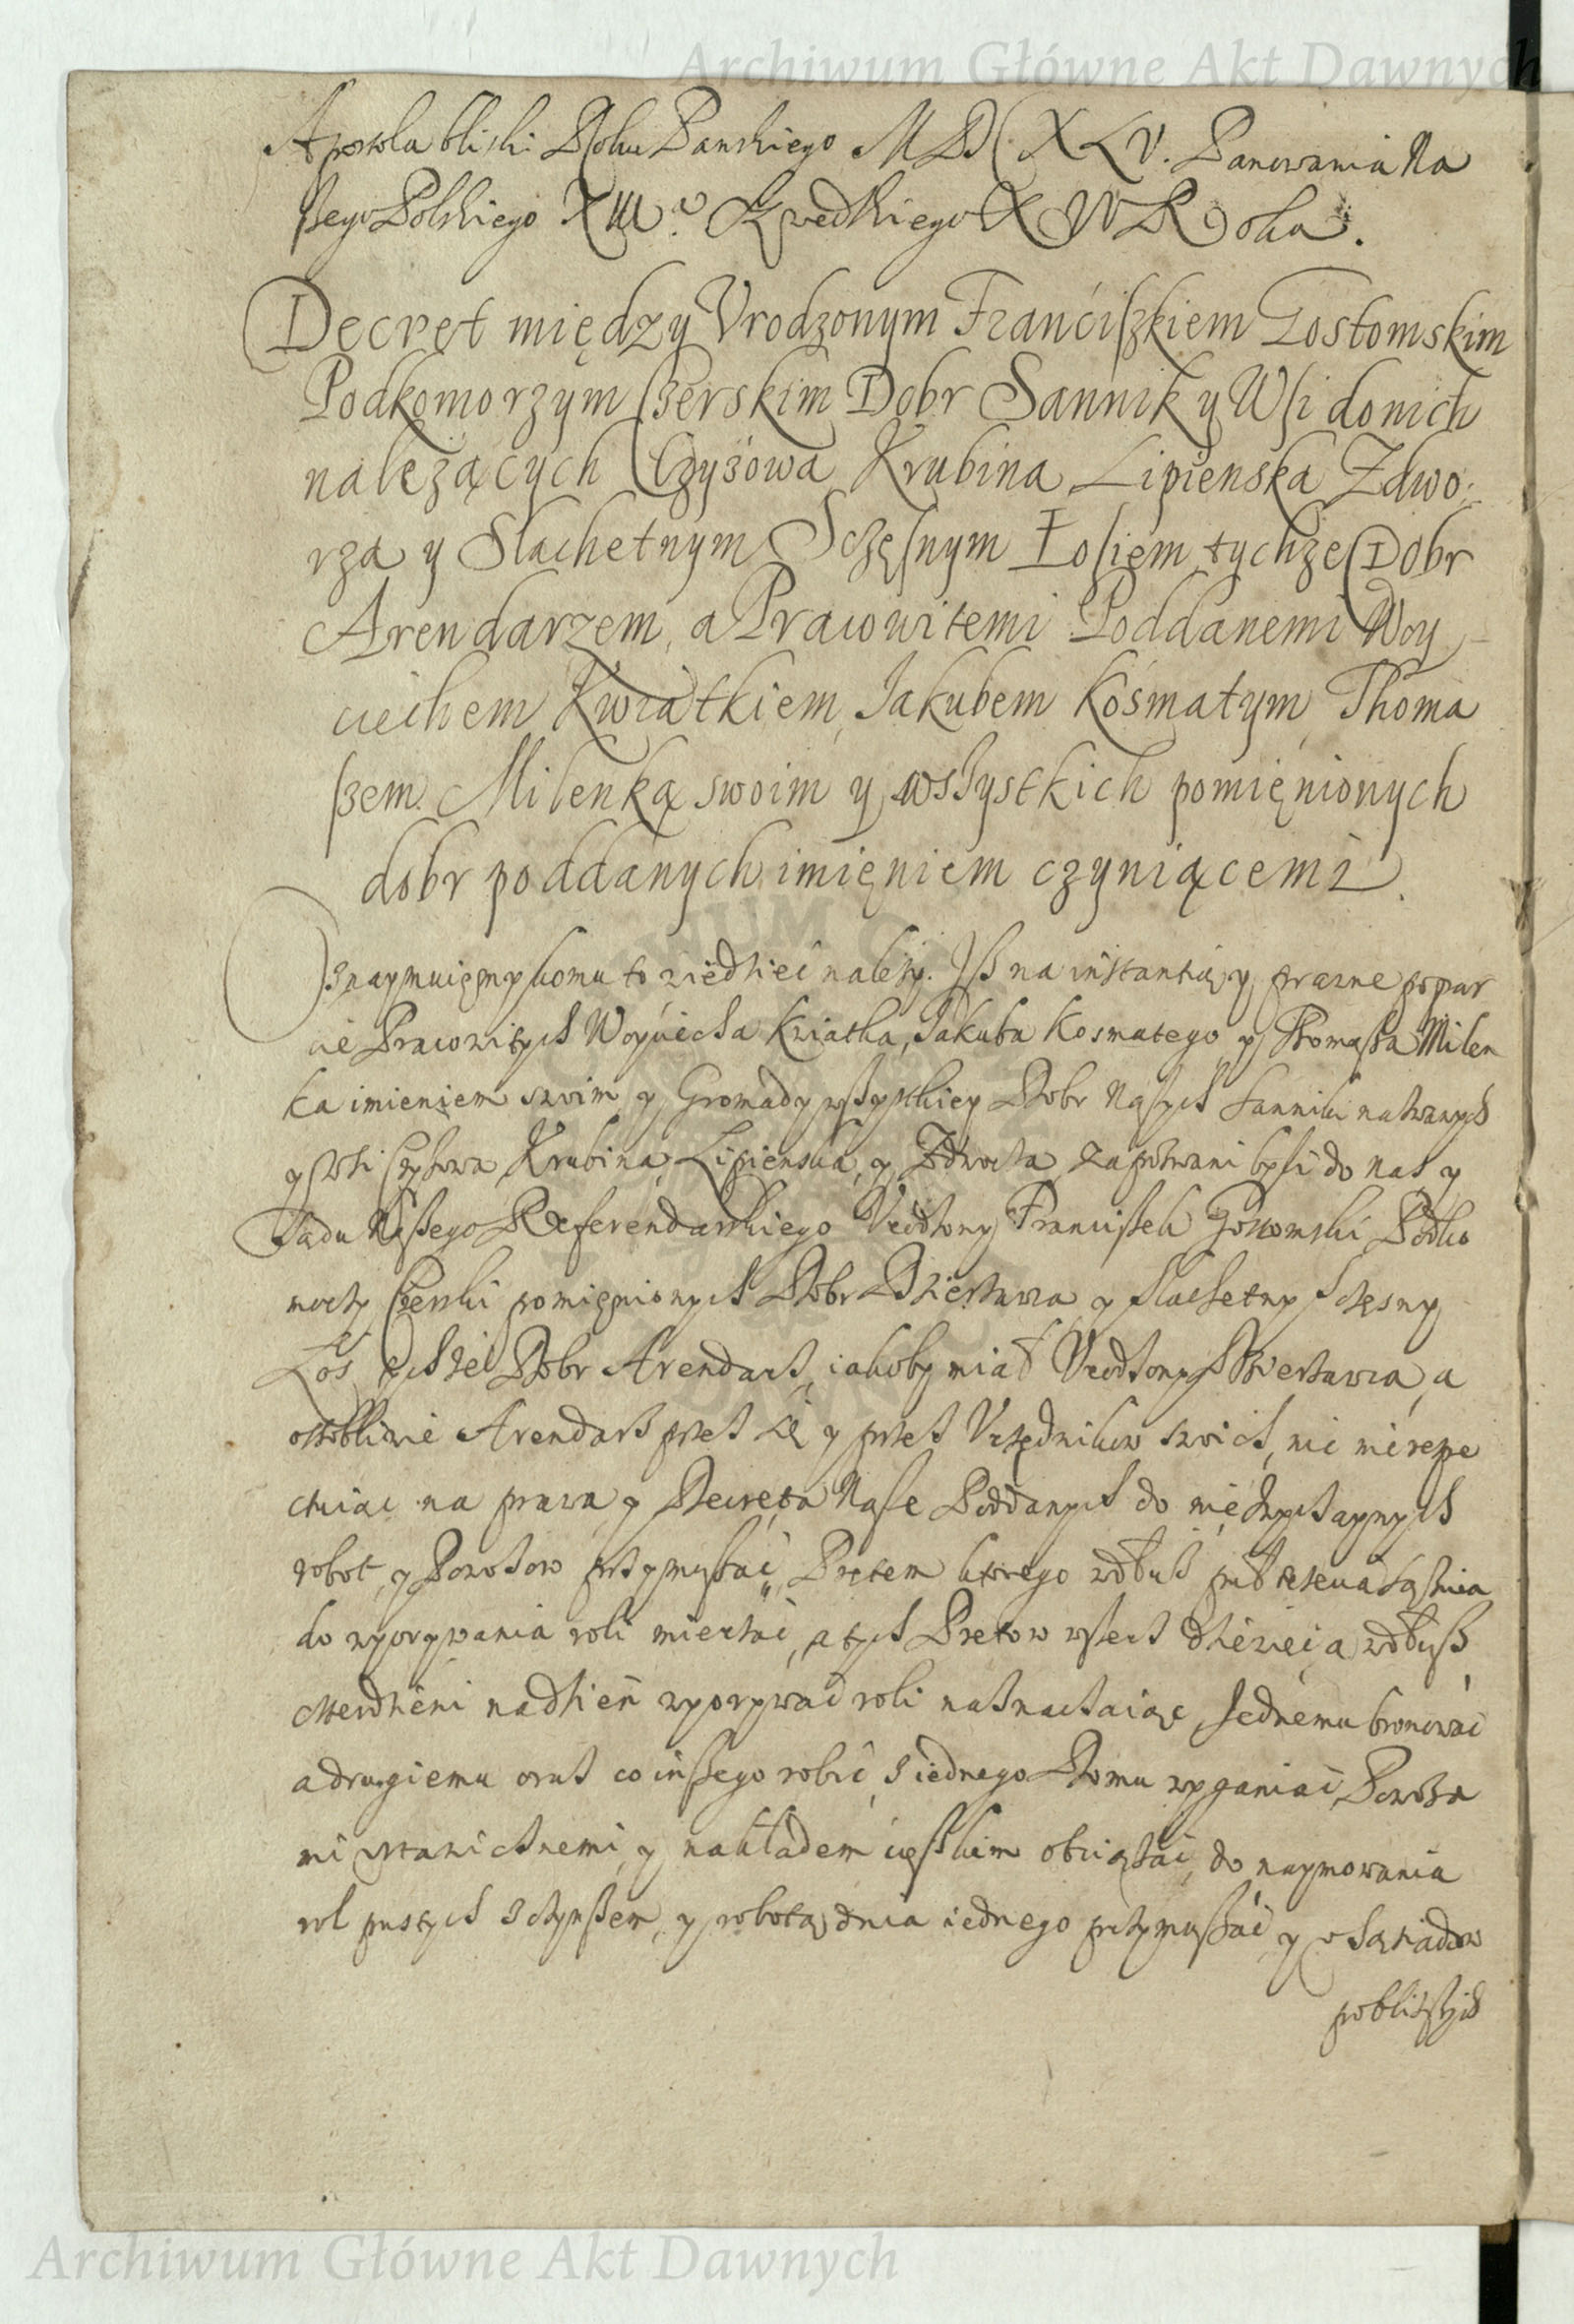 Archiwum Główne Akt Dawnych
Apostoła bliski Roku Panskiego MDCXLV. Panowania Na
ßego Polskiego XIII.º Szwedzkiego XIV Roku.
Decret między Vrodzonym Franćißkiem Gostomskim
Podkomorzym Czerskim Dobr Sannik y Wsi do nich
należących Czyżowa Krubina Lipienska Zdwo:
rza y Slachetnym Sczęsnym Łosiem tychże Dobr
Arendarzem, a Pracowitemi Poddanemi Woy
ciechem Kwiatkiem, Jakubem Kosmatym, Thoma
ßem Milenką swoim y wszystkich pomięnionych
dobr poddanych imięniem czyniącemi.
Oznaymuięmy komu to wiedzieć należy. Iß na instantią y prawne popar
cie Pracowitych Woyciecha Kwiatka, Jakuba Kosmatego y Thomaßa Milen
ka imieniem swoim y Gromady wßystkiey Dobr Naszych Sanniki nazwanych
y Wsi Czyżowa, Krubina, Lipienska, y Zdworza zapozwani byli do nas y
Sądu Naßego Referendarskiego Vrodzony Francißek Gostomski Podko
morzy Czerski pomięnionych Dobr Dzierżawca y slachetny Sczęsny
Łos tychże Dobr Arendarz, iakoby miał Vrodzony Dzierżawca, a
osobliwie Arendarz przez się y przez Vrzędnikow swoich, nic nie respe
ctuiąc na prawa y Decreta Nasze Poddanych do niezwyczaynych
robot, y Powozow przymußać, Prętem ktorego wdłuż
do wyorywania roli mierzać, a tych Prętow wszerz dziewięć a wdłuß
na dzien wyorywać roli naznaczaiąc, Jednemu bronować
a drugiemu oraz co inßego robić, z iednego Domu wyganiać, Powoza
mi vstawicznemi, y nakładem cięßkim obciążać, do naymowania
rol pustych z czynßem, y robotą dnia iednego przymußać, y v Sąsiadow
pobliższych
Archiwum Główne Akt Dawnych